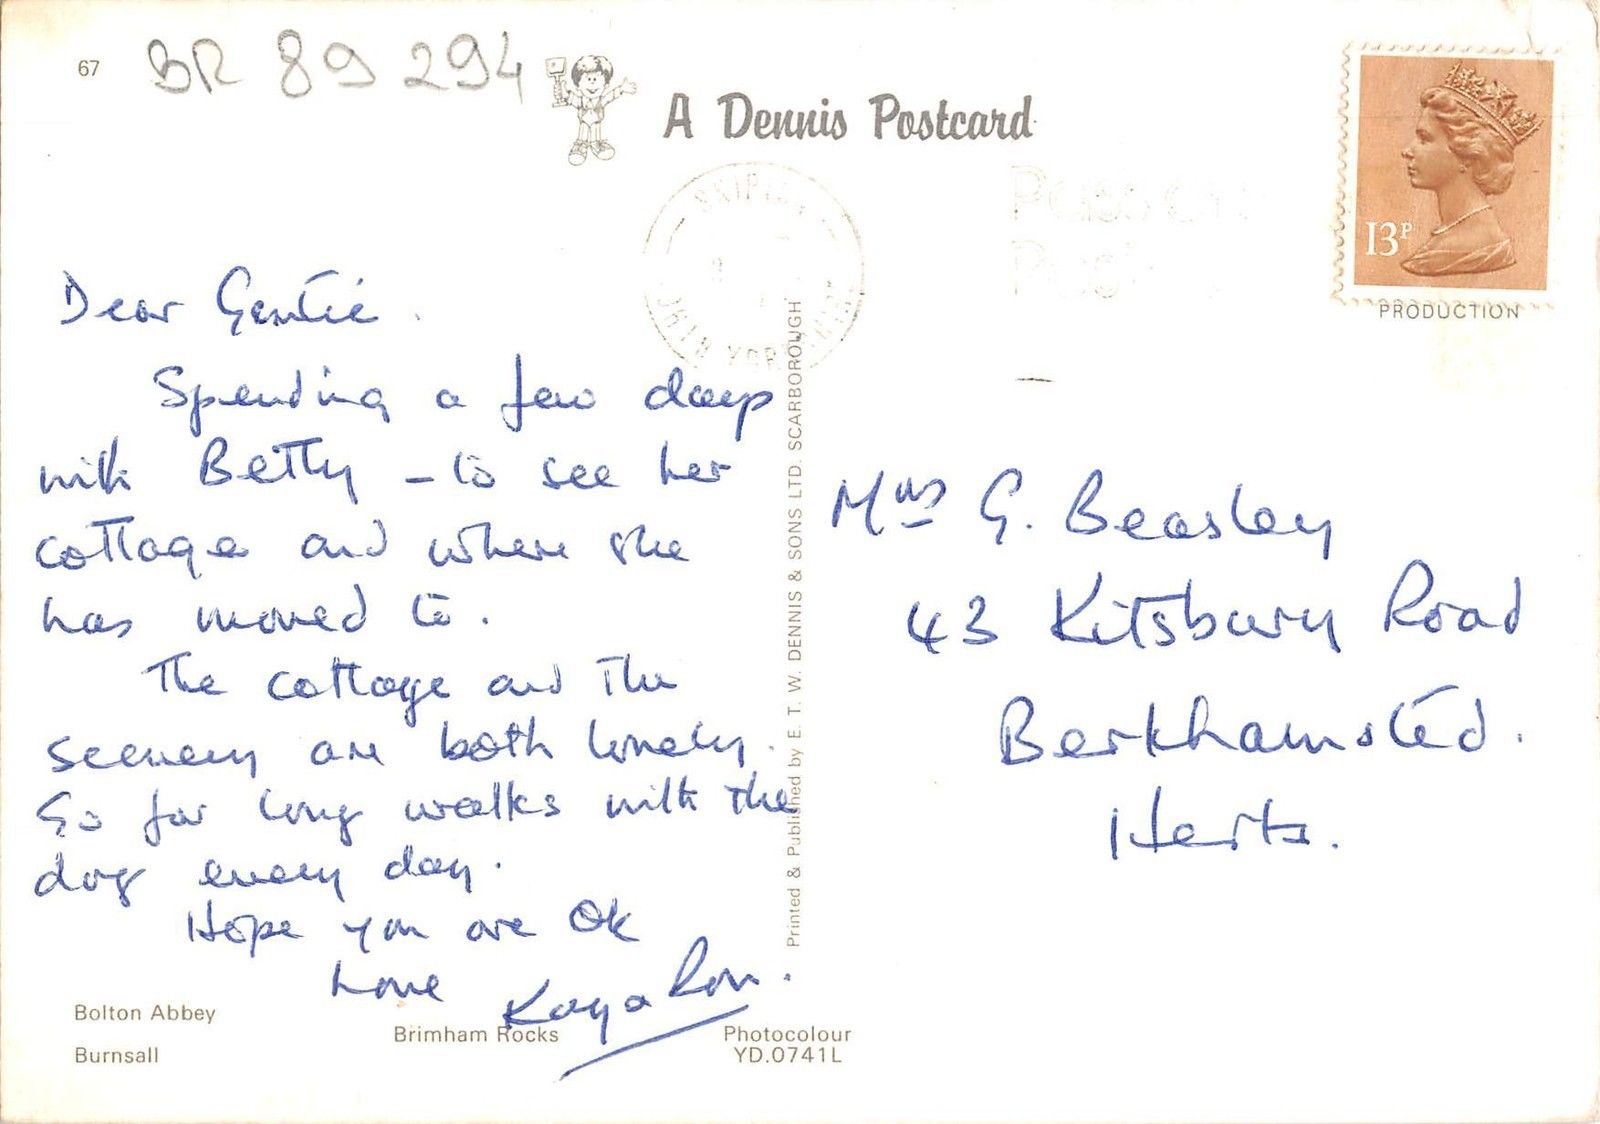 67
BR 89 294
A Dennis Postcard
SKIPTON
NORTH YORKSHIRE
13P
PRODUCTION
Dear Gertie.
Spending a few days
with Betty – to see her
cottage and where she
has moved to.
The cottage and the
scenery are both lovely.
Go for long walks with the
dog every day.
Hope you are Ok
Love Kay & Ron.
Printed & Published by E. T. W. DENNIS & SONS LTD. SCARBOROUGH
Mrs G. Beasley
43 Kitsbury Road
Berkhamsted.
Herts.
Bolton Abbey
Burnsall
Brimham Rocks
Photocolour
YD.0741L